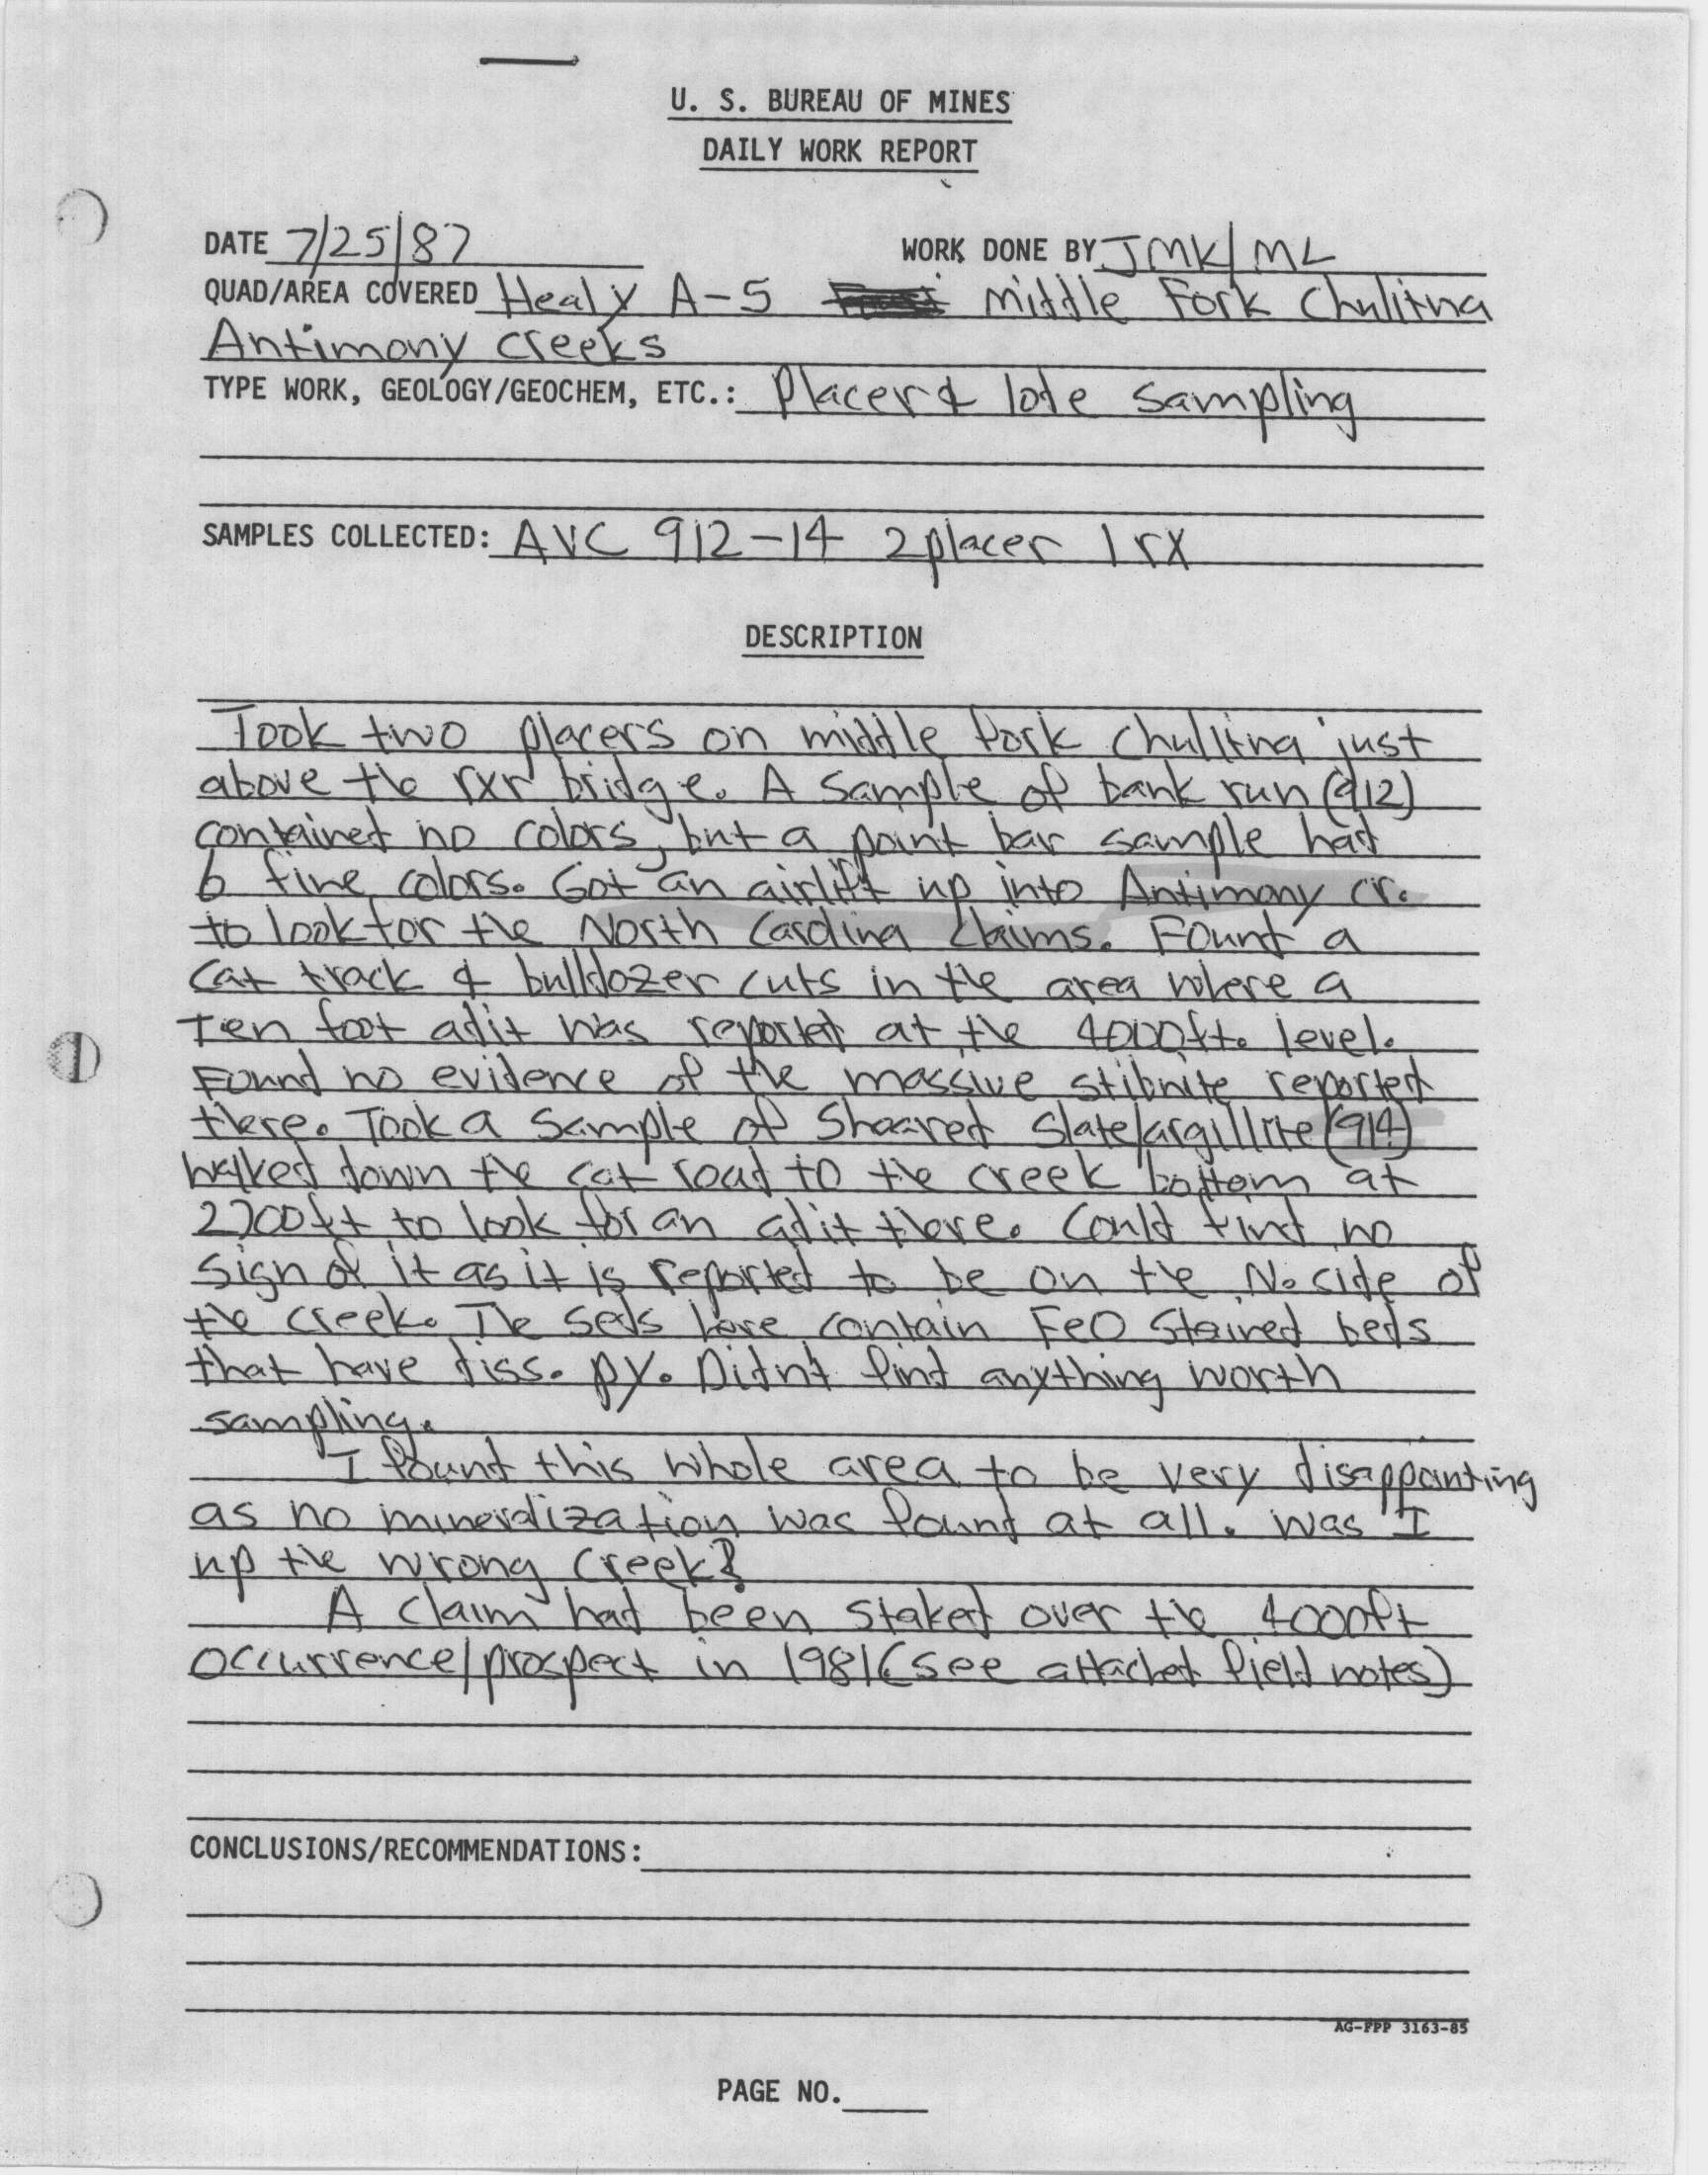 U. S. BUREAU OF MINES
DAILY WORK REPORT
DATE 7/25/87 WORK DONE BY JMK/ML
QUAD/AREA COVERED Healy A-5 Middle Fork Chulitna
Antimony Creeks
TYPE WORK, GEOLOGY/GEOCHEM, ETC.: Placer & lode sampling
SAMPLES COLLECTED: AVC 912-14 2 placer 1 rx
DESCRIPTION
Took two placers on middle fork Chulitna just
above the rxr bridge. A sample of bank run (912)
contained no colors, but a point bar sample had
6 fine colors. Got an airlift up into Antimony Cr.
to look for the North Carolina Claims. Found a
Cat track & bulldozer cuts in the area where a
Ten foot adit was reported at the 4000ft. level.
Found no evidence of the massive stibnite reported
there. Took a sample of sheared slate/argillite (914)
walked down the cat road to the creek bottom at
2700ft to look for an adit there. Could find no
sign of it as it is reported to be on the N. side of
the creek. The seds here contain FeO stained beds
that have diss. py. Didn't find anything worth
sampling.
I found this whole area to be very disappointing
as no mineralization was found at all. Was I
up the wrong creek?
A claim had been staked over the 4000ft
occurrence/prospect in 1981 (see attached field notes)
CONCLUSIONS/RECOMMENDATIONS:
AG-FPP 3163-85
PAGE NO.